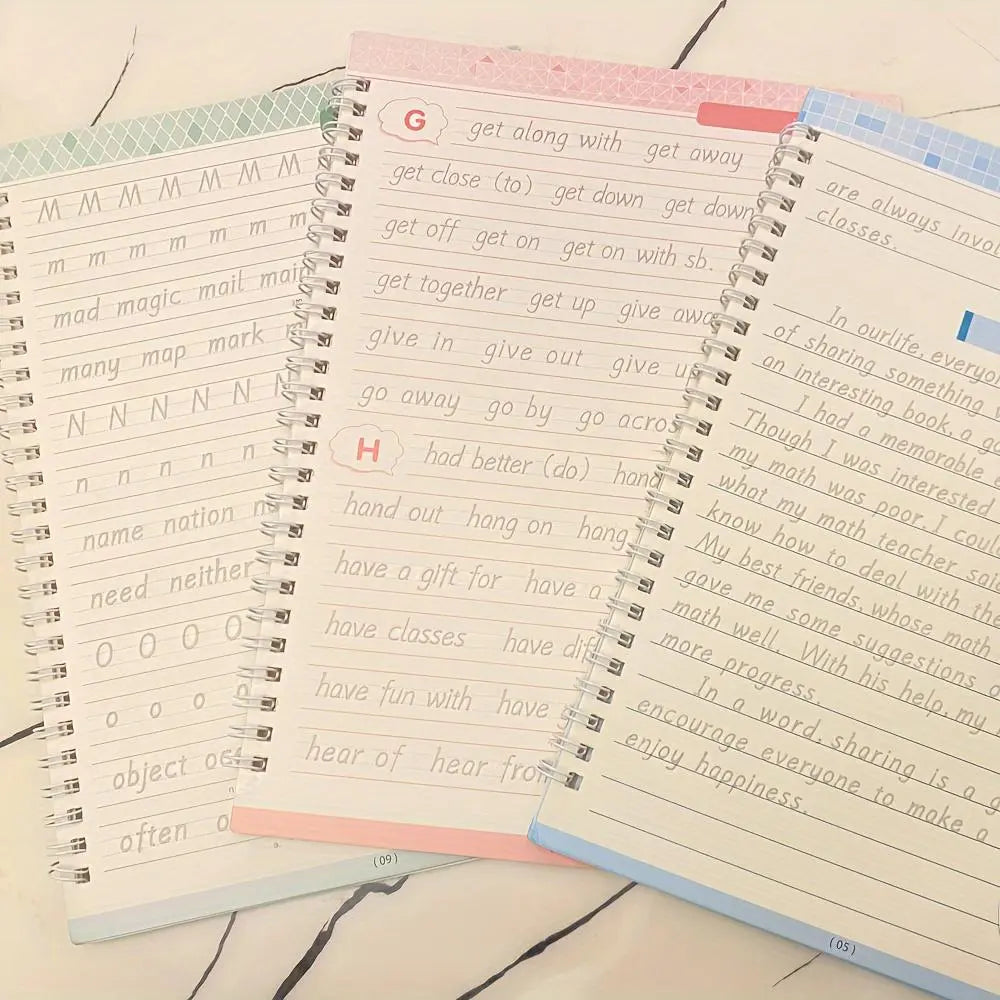 M M M M M M M
m m m m m m m
mad magic mail
many map mark
N N N N N N
n n n n n
name nation
need neither
O O O O
o o o o
object
often
(09)
G
get along with get away
get close (to) get down get down
get off get on get on with sb.
get together get up give
give in give out give
go away go by go
H
had better (do)
hand out hang on hang
have a gift for have a
have classes have
have fun with have
hear of hear
are always
classes.
In ourlife, 
of sharing something
an interesting book, a
I had a memorable
Though I was interested
my math was poor. I
what my math teacher
know how to deal with
My best friends, whose math
gave me some suggestions
math well. With his help, my
more progress.
In a word, sharing is a
encourage everyone to make a
enjoy happiness.
(05)